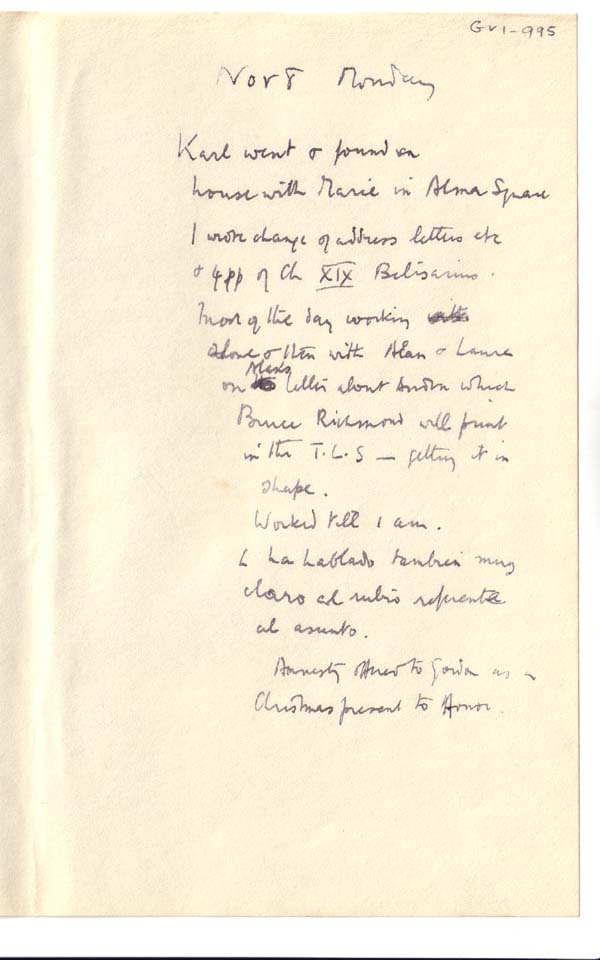 GV1-995
Nov 8 Monday
Karl went & found an
house with Marie in Alma Square
I wrote change of address letters etc
& 4 pp of Ch XIX Belisarius.
Most of the day working
alone & then with Alan & Laura
on Alan's letter about Andon which
Bruce Richmond will print
in the T.L.S — getting it in
shape.
Worked till 1 am.
L ha hablado tambien muy
claro al rubio referente
al asunto.
Amnesty offered to Gordon as a
Christmas present to Honor.